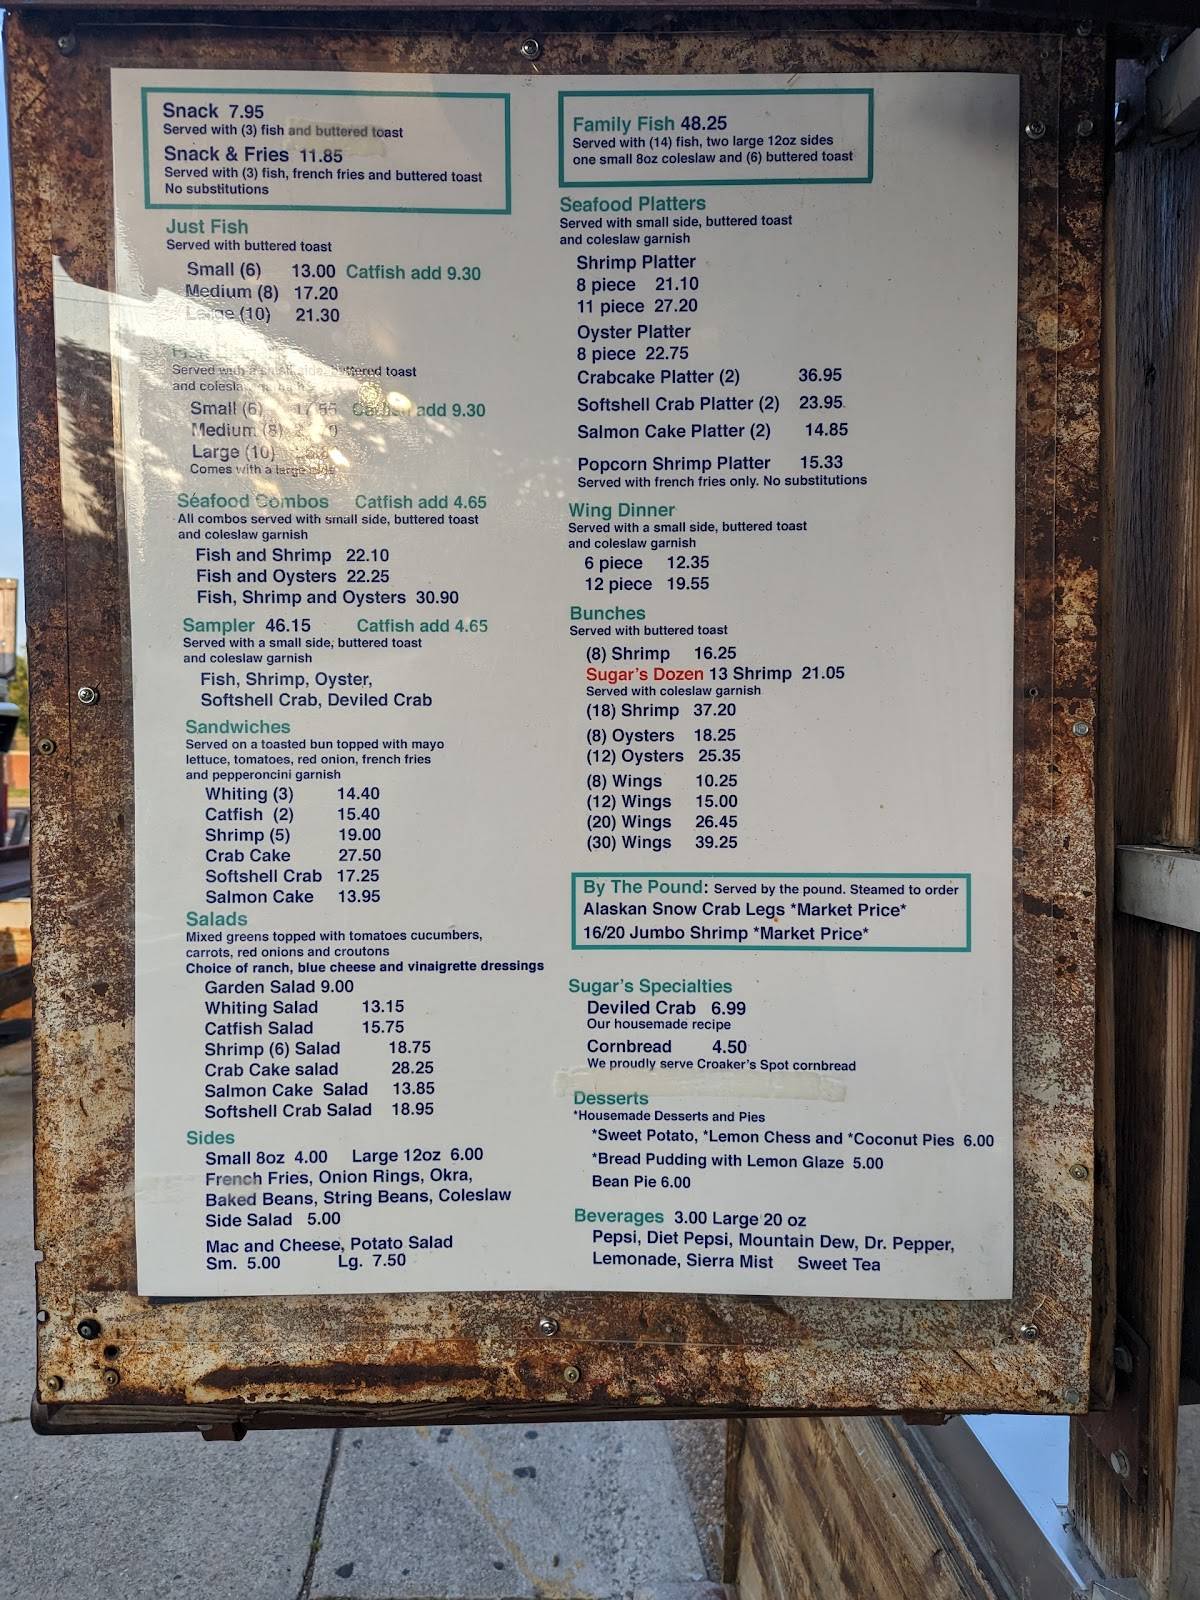 Snack 7.95
Served with (3) fish and buttered toast
Snack & Fries 11.85
Served with (3) fish, french fries and buttered toast
No substitutions
Just Fish
Served with buttered toast
Small (6) 13.00 Catfish add 9.30
Medium (8) 17.20
Large (10) 21.30
Served with a small side, buttered toast
and coleslaw
Small (6) Catfish add 9.30
Medium (8)
Large (10)
Comes with a large side
Seafood Combos Catfish add 4.65
All combos served with small side, buttered toast
and coleslaw garnish
Fish and Shrimp 22.10
Fish and Oysters 22.25
Fish, Shrimp and Oysters 30.90
Sampler 46.15 Catfish add 4.65
Served with a small side, buttered toast
and coleslaw garnish
Fish, Shrimp, Oyster,
Softshell Crab, Deviled Crab
Sandwiches
Served on a toasted bun topped with mayo
lettuce, tomatoes, red onion, french fries
and pepperoncini garnish
Whiting (3) 14.40
Catfish (2) 15.40
Shrimp (5) 19.00
Crab Cake 27.50
Softshell Crab 17.25
Salmon Cake 13.95
Salads
Mixed greens topped with tomatoes cucumbers,
carrots, red onions and croutons
Choice of ranch, blue cheese and vinaigrette dressings
Garden Salad 9.00
Whiting Salad 13.15
Catfish Salad 15.75
Shrimp (6) Salad 18.75
Crab Cake salad 28.25
Salmon Cake Salad 13.85
Softshell Crab Salad 18.95
Sides
Small 8oz 4.00 Large 12oz 6.00
French Fries, Onion Rings, Okra,
Baked Beans, String Beans, Coleslaw
Side Salad 5.00
Mac and Cheese, Potato Salad
Sm. 5.00 Lg. 7.50
Family Fish 48.25
Served with (14) fish, two large 12oz sides
one small 8oz coleslaw and (6) buttered toast
Seafood Platters
Served with small side, buttered toast
and coleslaw garnish
Shrimp Platter
8 piece 21.10
11 piece 27.20
Oyster Platter
8 piece 22.75
Crabcake Platter (2) 36.95
Softshell Crab Platter (2) 23.95
Salmon Cake Platter (2) 14.85
Popcorn Shrimp Platter 15.33
Served with french fries only. No substitutions
Wing Dinner
Served with a small side, buttered toast
and coleslaw garnish
6 piece 12.35
12 piece 19.55
Bunches
Served with buttered toast
(8) Shrimp 16.25
Sugar's Dozen 13 Shrimp 21.05
Served with coleslaw garnish
(18) Shrimp 37.20
(8) Oysters 18.25
(12) Oysters 25.35
(8) Wings 10.25
(12) Wings 15.00
(20) Wings 26.45
(30) Wings 39.25
By The Pound: Served by the pound. Steamed to order
Alaskan Snow Crab Legs *Market Price*
16/20 Jumbo Shrimp *Market Price*
Sugar's Specialties
Deviled Crab 6.99
Our housemade recipe
Cornbread 4.50
We proudly serve Croaker's Spot cornbread
Desserts
*Housemade Desserts and Pies
*Sweet Potato, *Lemon Chess and *Coconut Pies 6.00
*Bread Pudding with Lemon Glaze 5.00
Bean Pie 6.00
Beverages 3.00 Large 20 oz
Pepsi, Diet Pepsi, Mountain Dew, Dr. Pepper,
Lemonade, Sierra Mist Sweet Tea